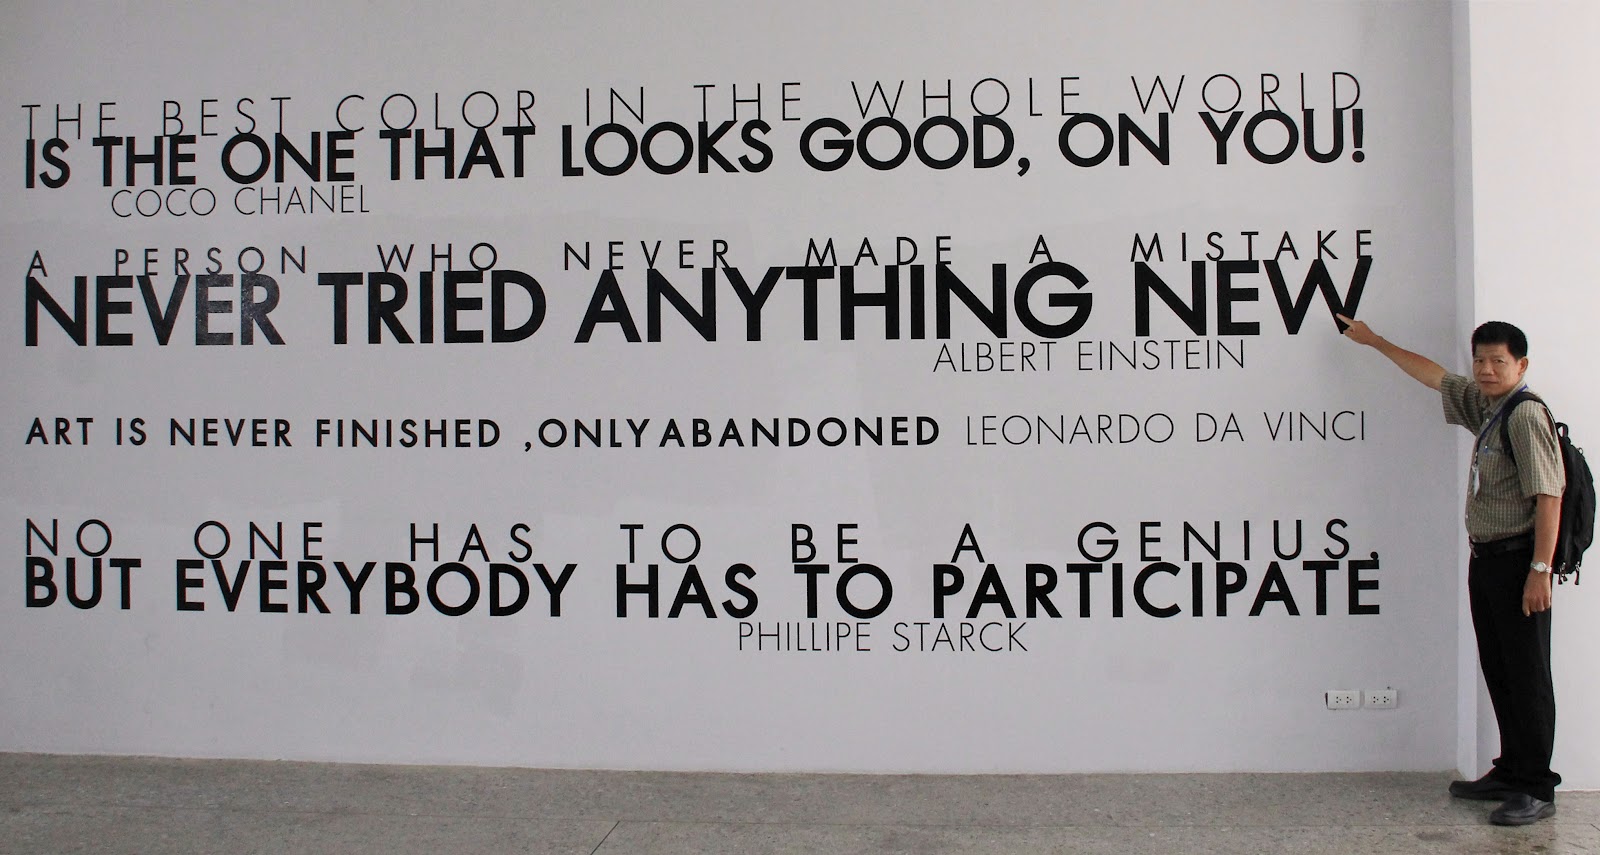 THE BEST COLOR IN THE WHOLE WORLD
IS THE ONE THAT LOOKS GOOD, ON YOU!
COCO CHANEL
A PERSON WHO NEVER MADE A MISTAKE
NEVER TRIED ANYTHING NEW
ALBERT EINSTEIN
ART IS NEVER FINISHED ,ONLY ABANDONED LEONARDO DA VINCI
NO ONE HAS TO BE A GENIUS,
BUT EVERYBODY HAS TO PARTICIPATE
PHILLIPE STARCK